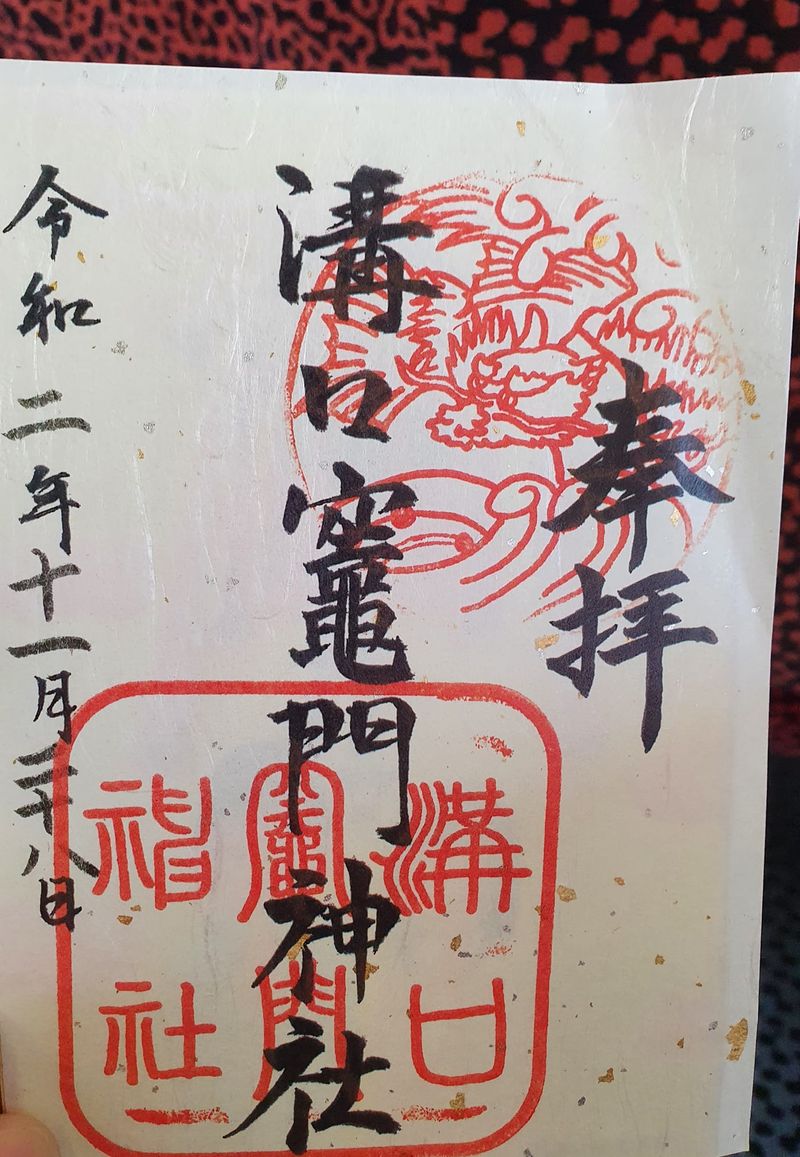 奉拝
溝口竈門神社
令和二年十一月二十八日
溝口
竈門
神社